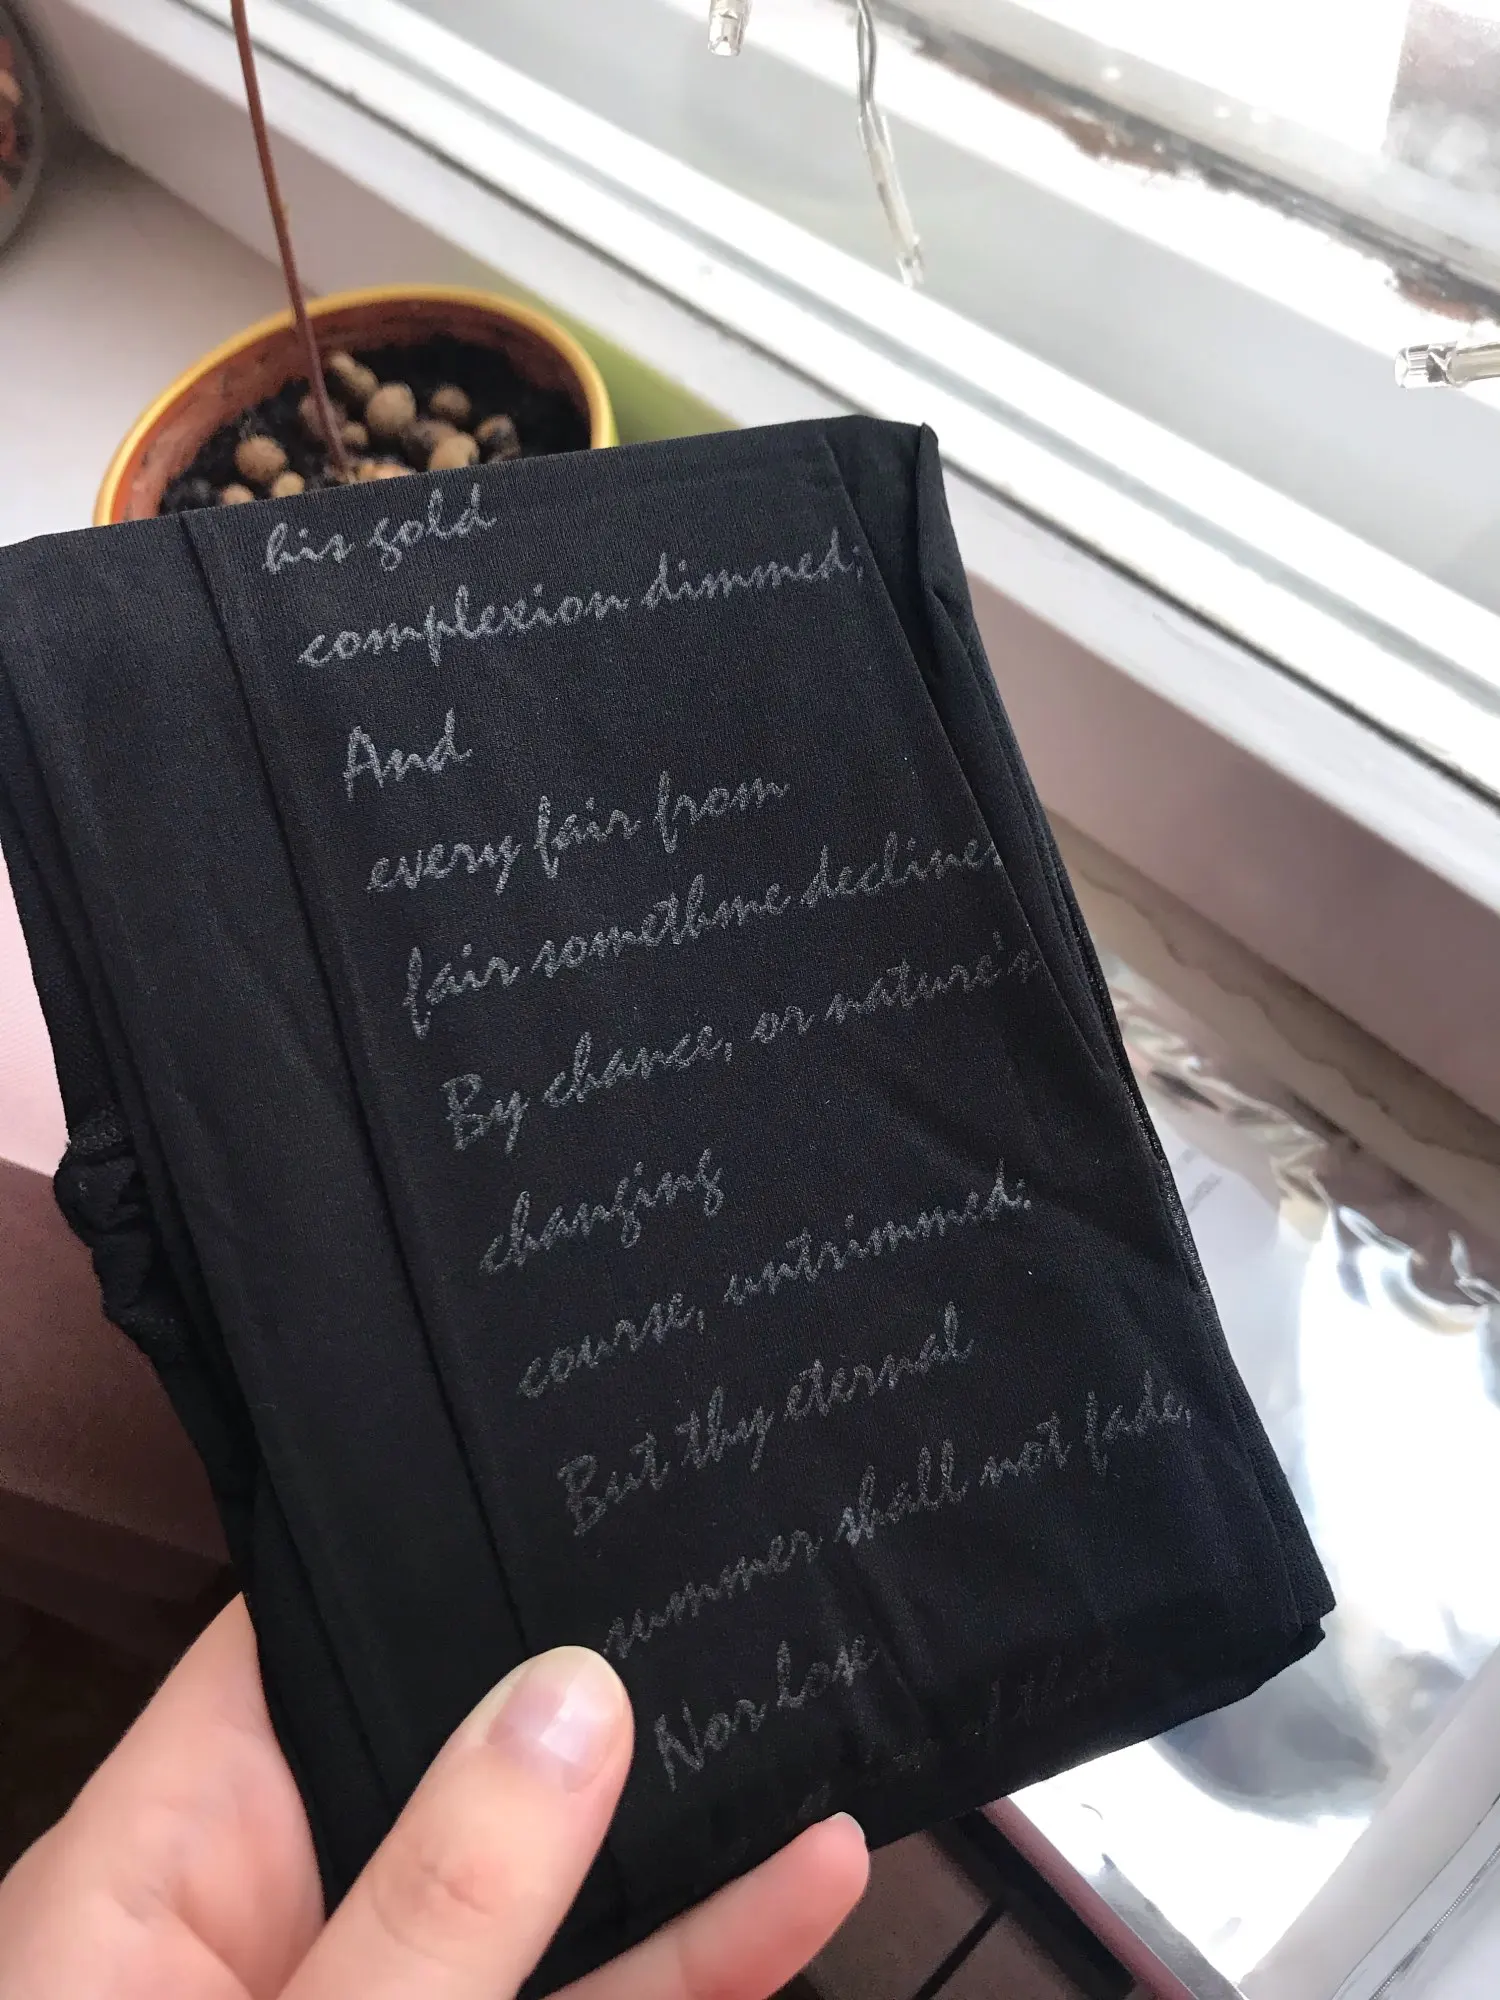 his gold
complexion dimmed;
And
every fair from
fair somethme declines
By chance, or nature's
changing
course, untrimmed:
But thy eternal
summer shall not fade,
Nor lose
that